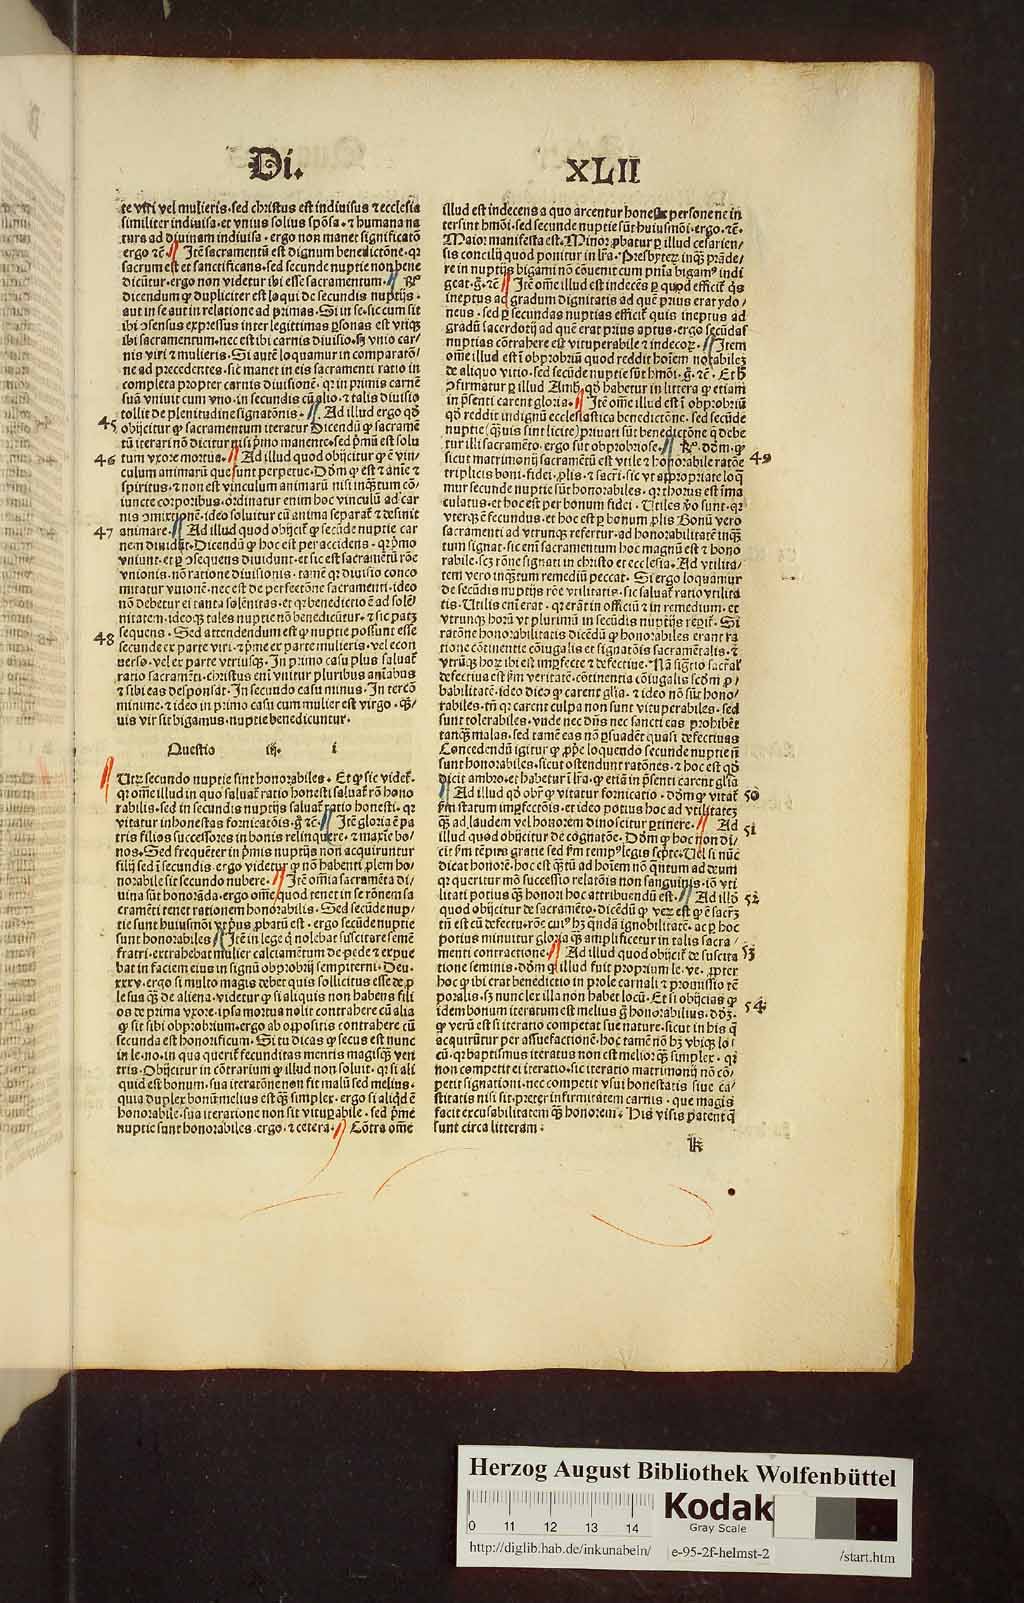 Di.
XLII
te viri vel mulieris·sed christus est indiuisus ⁊ ecclesia
similiter indiuisa·et vnius solius spōsa·⁊ humana na
tura ad diuinam indiuisa·ergo non manet significatō
ergo ⁊c̄ Itē sacramentū est dignum benedictōne·qꝛ
sacrum est et sanctificans·sed secunde nuptie non bene
dicūtur·ergo non videtur ibi esse sacramentum·
dicendum ꝙ dupliciter est loqui de secundis nuptijs·
aut in se aut in relatione ad primas·Si in se·sic cum sit
ibi ꝯsensus expressus inter legittimas ꝑsonas est vtiqꝫ
ibi sacramentum·nec est ibi carnis diuisio·sꝫ vnio car/
nis viri ⁊ mulieris·Si autē loquamur in comparatō/
ne ad precedentes·sic manet in eis sacramenti ratio in
completa propter carnis diuisionē·qꝛ in primis carnē
suā vniuit cum vno·in secundis cū alio·⁊ talis diuisio
tollit de plenitudine signatōnis· Ad illud ergo qd̄
45 obijcitur ꝙ sacramentum iteratur Dicendū ꝙ sacramē
tū iterari nōn dicitur nisi p̄mo manente·sed p̄mū est solu
46 tum vxore mortua· Ad illud quod obijcitur ꝙ ē vin/
culum animarū que sunt perpetue·Dōm ꝙ est ⁊ aniē ⁊
spiritus·⁊ non est vinculum animarū nisi inqꝫtum cō/
iuncte corporibus·ordinatur enim hoc vinculū ad car
nis ꝯmixtionē·ideo soluitur cū anima separat᷑ ⁊ desinit
47 animare· Ad illud quod obijcit᷑ ꝙ secūde nuptie car
nem diuidūt·Dicendū ꝙ hoc est per accidens·qꝛ p̄mo
vniunt·et ꝑ ꝯsequens diuidunt·et sic est sacramētū rōe
vnionis·nō ratione diuisionis·tamē qꝛ diuisio conco
mitatur vnionē·nec est de perfectōne sacramenti·ideo
nō debetur ei tanta solēnitas·et qꝛ benedictio ē ad solē/
nitatem·ideoqꝫ tales nuptie nō benedicūtur·⁊ sic patꝫ
48 sequens· Sed attendendum est ꝙ nuptie possunt esse
secunde ex parte viri·⁊ p̄me ex parte mulieris·vel econ
uerso·vel ex parte vtriusqꝫ·In primo casu plus saluat᷑
ratio sacramēti·christus enī vnitur pluribus aniabus
⁊ sibi eas desponsat·In secundo casu minus·In tercō
minime·⁊ ideo in primo casu cum mulier est virgo·qꝫ/
uis vir sit bigamus·nuptie benedicuntur·
Questio iij· i
Utꝝ secundo nuptie sint honorabiles·Et ꝙ sic videt᷑·
qꝛ om̄e illud in quo saluat᷑ ratio honesti saluat᷑ rō hono
rabilis·sed in secundis nuptijs saluat᷑ ratio honesti·qꝛ
vitatur inhonestas fornicatōis·g̊ ⁊c̄ Itē gloria ē pa
tris filios successores in bonis relinquere·⁊ maxīe bo/
nos·Sed frequēter in p̄mis nuptijs non acquiruntur
filij sed ī secundis·ergo videtur ꝙ nō habenti ꝓlem ho/
norabile sit secundo nubere· Itē om̄ia sacramēta di/
uina sūt honorāda·ergo om̄e quod tenet in se rōnem sa
cramēti tenet rationem honorabilis·Sed secūde nup/
tie sunt huiusmōi vt prius ꝓbatū est·ergo secūde nuptie
sunt honorabiles Itē in lege q̄ nolebat suscitare semē
fratri·extrahebat mulier calciamētum de pede ⁊ expue
bat in faciem eius in signū obprobrij sempiterni·Deu·
xxxv·ergo si multo magis debet quis sollicitus esse de ꝓ
le sua qꝫ de aliena·videtur ꝙ si aliquis non habens fili
os de prima vxore·ipsa mortua nolit contrahere cū alia
ꝙ sit sibi obprobrium·ergo ab oppositis contrahere cū
secunda est honorificum·Si tu dicas ꝙ secus est nunc
in le·no·in qua querit᷑ fecunditas mentis magisqꝫ ven
tris·Obijcitur in cōtrarium ꝙ illud non soluit·qꝛ si ali
quid est bonum·sua iteratōne non fit malū sed melius·
quia duplex bonū melius est qꝫ simplex·ergo si aliqd̄ ē
honorabile·sua iteratione non fit vituꝑabile·sed p̄me
nuptie sunt honorabiles·ergo·⁊ cetera· Cōtra om̄e
illud est indecens a quo arcentur honeste persone ne in
tersint hmōi·sed secunde nuptie sūt huiusmōi·ergo·⁊c̄·
Maior manifesta est·Minor ꝓbatur ꝑ illud cesarien/
sis concilij quod ponitur in lr̄a·Presbyteꝝ inqꝫ prāde/
re in nuptijs bigami nō cōuenit cum pnīa bigamꝰ indi
geat·g̊·⁊c̄ Itē om̄e illud est indecēs ꝑ quod efficit᷑ qs̄
ineptus ad gradum dignitatis ad quē prius erat ydo/
neus·sed ꝑ secundas nuptias efficit᷑ quis ineptus ad
gradū sacerdotij ad quē erat prius aptus·ergo secūdas
nuptias cōtrahere est vituperabile ⁊ indecoꝝ· Item
om̄e illud est ī obprobriū quod reddit hoīem notabileꝫ
de aliquo vitio·sed secūde nuptie sūt hmōi·g̊·⁊c̄·Et h̄
ꝯfirmatur ꝑ illud Amb̄·qd̄ habetur in littera ꝙ etiam
in p̄senti carent gloria· Itē om̄e illud est ī obprobriū
qd̄ reddit indignū ecclesiastica benedictōne·sed secūde
nuptie (qꝫuis sint licite) priuari sūt benedictōne q̄ debe
tur illi sacramēto·ergo sūt obprobriose· dōm·ꝙ
sicut matrimonij sacramētū est vtile ⁊ honorabile ratōe 49
triplicis boni·fidei·ꝓlis·⁊ sacri·sic vt appropriate loq̄
mur secunde nuptie sūt honorabiles·qꝛ thorus est īma
culatus·et hoc est per bonum fidei·Utiles v̊o sunt·qꝛ
vterqꝫ ē fecundus·et hoc est ꝑ bonum ꝓlis Bonū vero
sacramenti ad vtrunqꝫ refertur·ad honorabilitatē inqꝫ
tum signat·sic enī sacramentum hoc magnū est ⁊ hono
rabile·scꝫ rōne signati in christo et ecclesia·Ad vtilita/
tem vero inqꝫtum remediū peccati·Si ergo loquamur
de secūdis nuptijs rōe vtilitatis·sic saluat᷑ ratio vtilita
tis·Utilis enī erat·qꝛ erāt in officiū ⁊ in remedium·et
vtrunqꝫ horū vt plurimū in secūdis nuptijs reꝑit᷑·Si
ratōne honorabilitatis dicēdū ꝙ honorabiles erant ra
tione cōtinentie cōiugalis et signatōis sacramētalis·⁊
vtrūqꝫ hoꝝ ibi est imꝑfecte ⁊ defectiue·
defectiua est fm̄ veritatē·cōtinentia cōiugalis scdm ꝓ/
babilitatē·ideo dico ꝙ carent glīa·⁊ ideo nō sūt hono/
rabiles·tn̄ qꝛ carent culpa non sunt vituperabiles·sed
sunt tolerabiles·vnde nec dn̄s nec sancti eas prohibēt
tanqꝫ malas·sed tamē eas nō ꝑsuadēt quasi defectiuas
Concedendū igitur ꝙ ꝓp̄e loquendo secunde nuptie n̄
sunt honorabiles·sicut ostendunt ratōnes·⁊ hoc est qd̄
dicit ambro·et habetur ī lr̄a·ꝙ etiā in p̄senti carent glīa
Ad illud qd̄ obi᷑ ꝙ vitatur fornicatio·dōm ꝙ vitat᷑ 50
fm̄ statum imꝑfectōis·et ideo potius hoc ad vtilitateꝫ
qꝫ ad laudem vel honorem dinoscitur ꝑtinere· Ad 51
illud quod obijcitur de cognatōe·Dōm ꝙ hoc non di/
cit fm̄ tēpus gratie sed fm̄ tempꝰ legis scp̄te·Uel si nūc
dicat honorē·hoc est qꝫtū ad hoīem nō qꝫtum ad deum
qꝛ queritur mō successio relatōis non sanguinis·iō vti
litati potius qꝫ honori hoc attribuendū est· Ad illd̄ 52
quod obijcitur de sacramēto·dicēdū ꝙ veꝝ est ꝙ ē sacr̄ꝫ
tū est cū defectu·rōe cuiꝰ hꝫ qndā ignobilitatē·ac ꝑ hoc
potius minuitur gloria qꝫ amplificetur in talis sacra/
menti contractione· Ad illud quod obijcit᷑ de suscita 53
tione seminis·dōm ꝙ illud fuit proprium le·ve·ꝓpter
hoc ꝙ ibi erat benedictio in prole carnali ⁊ promissio tē
poralis·sꝫ nunc lex illa non habet locū·Et si obijcias ꝙ
idem bonum iteratum est melius g̊ honorabilius·dōꝫ· 54
ꝙ verū est si iteratio competat sue nature·sicut in his q̄
acquirūtur per assuefactionē·hoc tamē nō hꝫ vbiqꝫ lo/
cū·qꝛ baptismus iteratus non est melior qꝫ simplex·qꝛ
non competit ei iteratio·sic iteratio matrimonij nō cō/
petit signationi·nec competit vsui honestatis siue ca/
stitatis nisi sit preter infirmitatem carnis·que magis
facit excusabilitatem qꝫ honorem·His visis patent q̄
sunt circa litteram·
k
Herzog August Bibliothek Wolfenbüttel
0 11 12 13 14
Kodak
Gray Scale
http://diglib.hab.de/inkunabeln/
e-95-2f-helmst-2
/start.htm